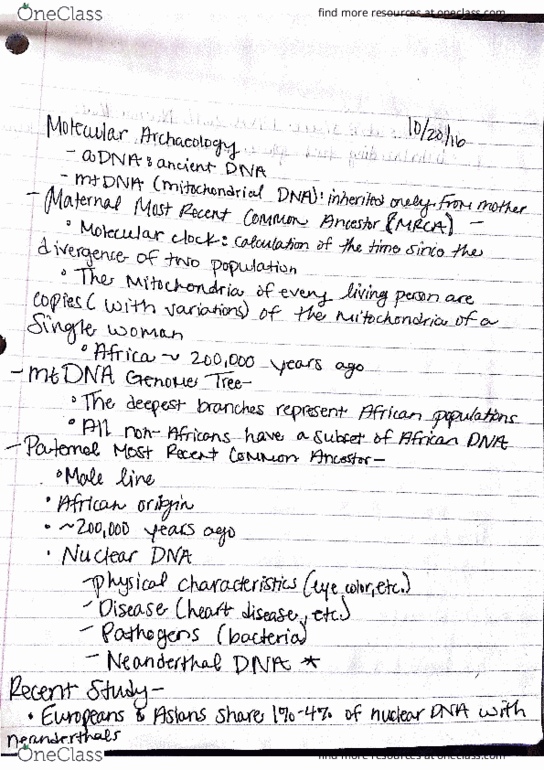 OneClass
find more resources at oneclass.com
10/20/16
Molecular Archaeology
- aDNA: ancient DNA
- mtDNA (mitochondrial DNA): inherited only from mother
- Maternal Most Recent Common Ancestor (MRCA) -
• Molecular clock: calculation of the time since the
divergence of two population
• The Mitochondria of every living person are
copies (with variations) of the mitochondria of a
Single woman
• Africa ~ 200,000 years ago
- mtDNA Genome Tree-
• The deepest branches represent African populations
• All non-Africans have a subset of African DNA
- Paternal Most Recent Common Ancestor -
• Male line
• African origin
• ~200,000 years ago
• Nuclear DNA
- physical characteristics (eye color, etc.)
- Disease (heart disease, etc)
- Pathogens (bacteria)
- Neanderthal DNA *
Recent Study -
• Europeans & Asians share 1%-4% of nuclear DNA with
neanderthals
OneClass
find more resources at oneclass.com